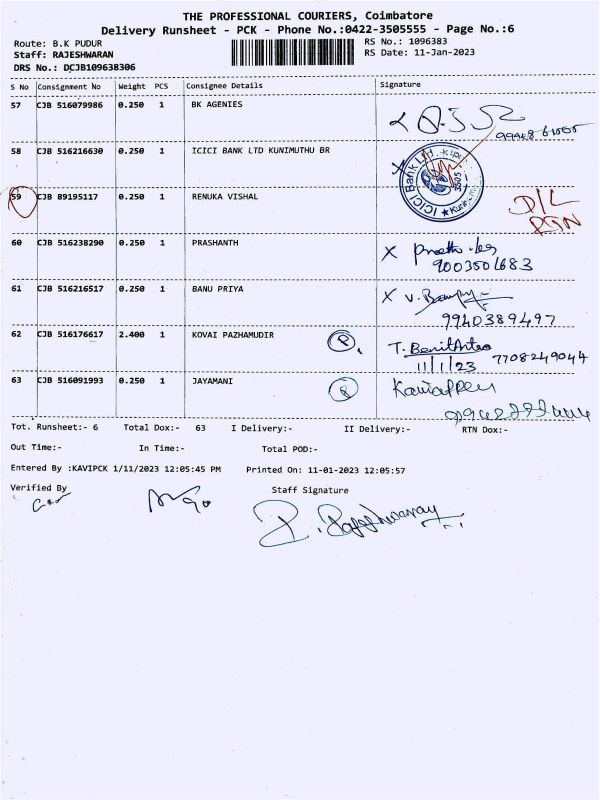 THE PROFESSIONAL COURIERS, Coimbatore
Delivery Runsheet - PCK - Phone No.:0422-3505555 - Page No.:6
Route: B.K PUDUR
RS No.: 1096383
Staff: RAJESHWARAN
RS Date: 11-Jan-2023
DRS No.: DCJB109638306
S No Consignment No Weight PCS Consignee Details Signature
57 CJB 516079986 0.250 1 BK AGENIES
58 CJB 516216630 0.250 1 ICICI BANK LTD KUNIMUTHU BR
ICICI Bank Ltd.
59 CJB 89195117 0.250 1 RENUKA VISHAL
D/L
RTN
60 CJB 516238290 0.250 1 PRASHANTH
X
9003501683
61 CJB 516216517 0.250 1 BANU PRIYA
X V.
9940389497
62 CJB 516176617 2.400 1 KOVAI PAZHAMUDIR
T.
11/1/23 7708249044
63 CJB 516091993 0.250 1 JAYAMANI
8
Tot. Runsheet:- 6 Total Dox:- 63 I Delivery:- II Delivery:- RTN Dox:-
Out Time:- In Time:- Total POD:-
Entered By :KAVIPCK 1/11/2023 12:05:45 PM Printed On: 11-01-2023 12:05:57
Verified By Staff Signature